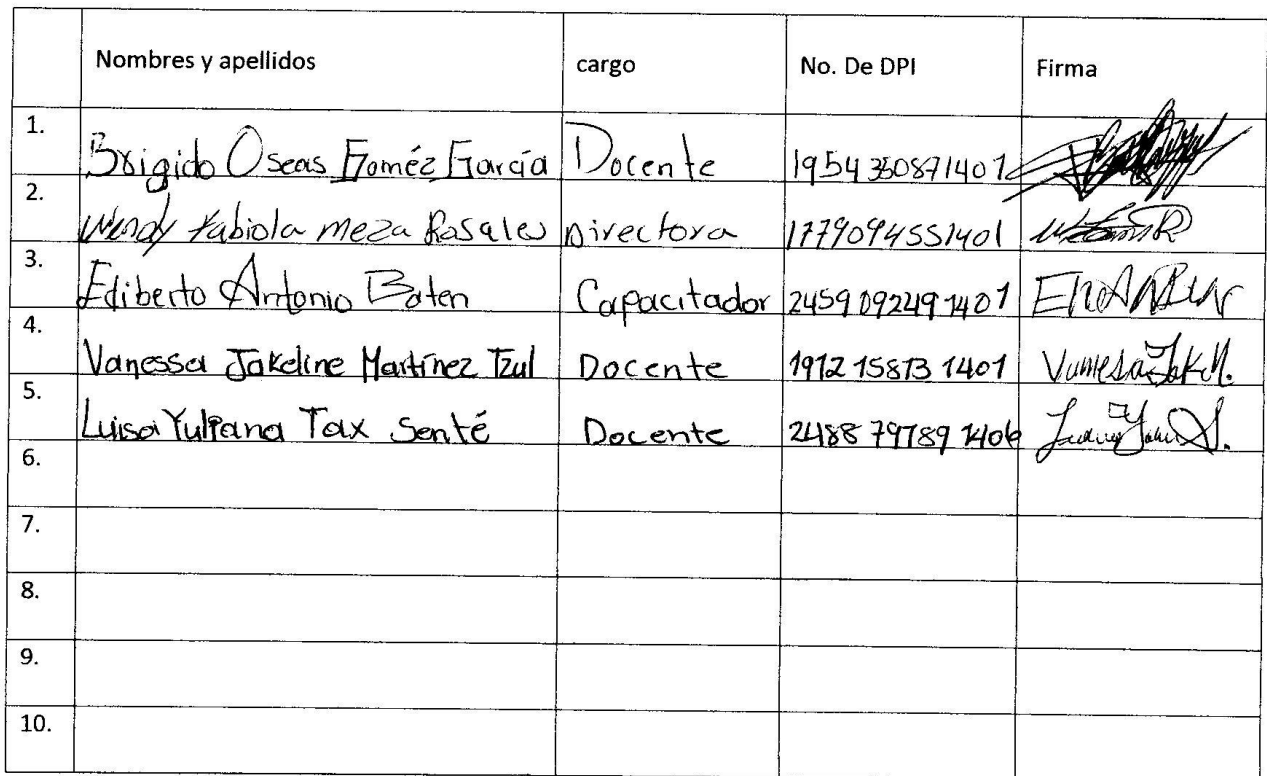 Nombres y apellidos cargo No. De DPI Firma
1. Brigido Oseas Goméz García Docente 1954350871401
2. Wendy Fabiola Meza Rosales Directora 1779094551401
3. Ediberto Antonio Baten Capacitador 2459092491401
4. Vanessa Jakeline Martínez Tzul Docente 1912 15873 1401
5. Luisa Yuliana Tax Senté Docente 2488 79789 1406
6.
7.
8.
9.
10.